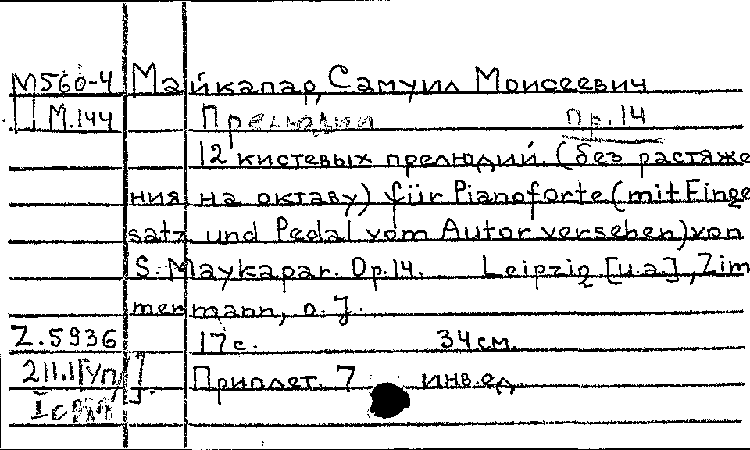 М560-4 Майкапар, Самуил Моисеевич
М.144 Прелюдии ор.14
12 кистевых прелюдий (без растяже
ния на октаву) für Pianoforte (mit Finge
satz und Pedal vom Autor versehen) von
S. Maykapar. Op.14. Leipzig [u.a.], Zim
mermann, o. J.
Z.5936 17 с. 34 см.
Приплет. 7 инв.ед